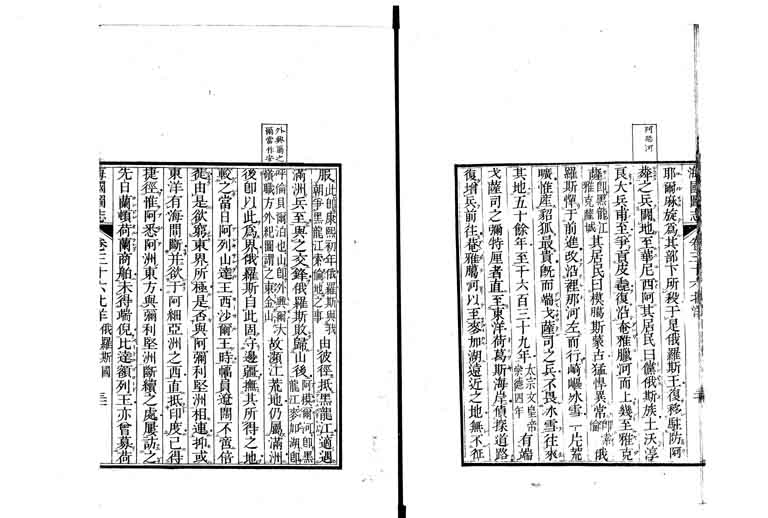 阿葬河
海國圖志 卷三十六 北洋
耶爾麻旋爲其部下所殺于是俄羅斯王復移駐防阿
葬之兵闢地至華尼西阿其居民曰儸俄斯族土沃淳
良大兵甫至爭貢皮毳復沿菴雅臘河而上幾至雅克
薩卽黑龍江雅克薩城其居民曰模臈斯蒙古猛悍異常卽索倫俄
羅斯憚于前進改沿裡那河左而行崎嶇冰雪一片荒
曠惟産貂狐最貴旣而端戈薩司之兵不畏冰雪往來
其地五十餘年至千六百三十九年太宗文皇帝崇德四年有端
戈薩司之彌特厘者直至東洋荷葛斯海岸偵探道路
復增兵前往菴雅臘河以至麥加湖遠近之地無不征
外興 之 當作安
服此卽康熙初年俄羅斯與我朝爭黑龍江索倫地之事由彼徑抵黑龍江適遇
滿洲兵至與之交鋒俄羅斯敗歸山後阿模爾河卽黑龍江麥加湖卽
呼倫貝爾泊也山卽外興大嶺職方外紀圖謂之東金山故瀕江荒地仍屬滿洲
後卽以此爲界俄羅斯自此固守邊疆撫其所得之地
較之當日阿列山達王西沙爾王時幅員遼闊不啻倍
蓰由是欲窮東界所極是否與阿彌利堅洲相連抑或
東洋有海間斷并欲于阿細亞洲之西直抵印度已得
捷徑惟阿悉阿洲東方與彌利堅洲斷續之處屢訪之
先日蘭頓荷蘭商舶未得端倪比達額列王亦曾募荷
海國圖志 卷三十六 北洋 俄羅斯國